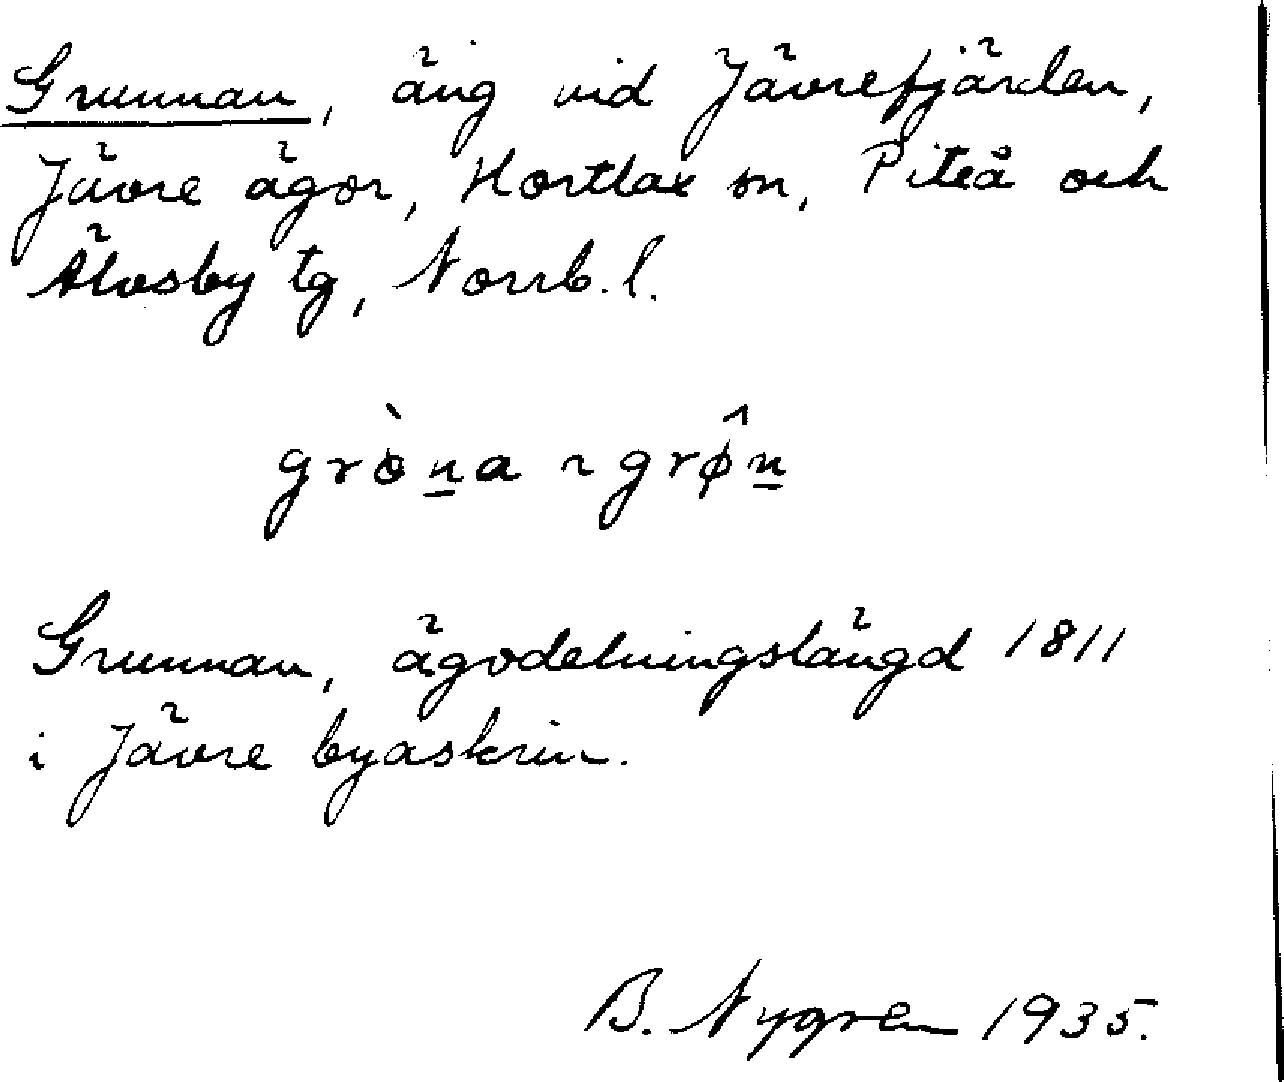 Grunnan, äng vid Jävrefjärden,
Jävre ägor, Hortlax sn, Piteå och
Älvsby tg, Norrb. l.
gròn̲a ~ grø̂n̲
Grunnan, ägodelningslängd 1811
i Jävre byaskrin.
B. Nygren 1935.